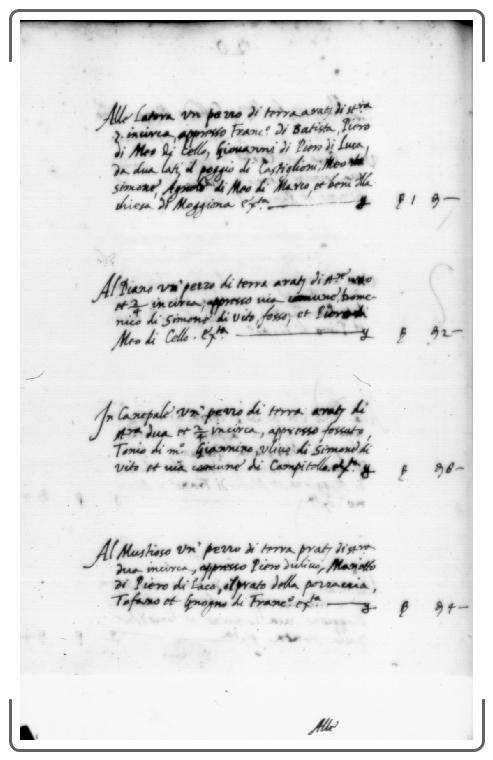 Alle Latora un pezzo di terra arat; di st.ra
3. incirca, appresso Franc.o di Batista, Piero
di Meo di Cello, Giovanni di Piero di Luca,
da dua lati il poggio di Castiglioni, Meo di
simone, Agnolo di Meo di Marco, et beni dlla
chiesa di Moggiona etc.ta 1
Al Piano un pezzo di terra arat; di st.ro uno
et 2/4 incirca, appresso via comune, Dome-
nico di simone di vito, fosso, et Piero di
Meo di Cello. etc.ta 2
In Canepale un pezzo di terra arat; di
st.ra dua et 2/4 incirca, appresso fossato,
Tonio di m.o Giannino, ulivo di simone di
vito et via comune di Campitello. etc.ta 6
Al Mustioso un pezzo di terra prat; di st.ra
dua incirca, appresso Piero d'ulivo, Mariotto
di Piero di Laco, il prato della
Tofano et Gnogno di Franc.o etc.ta 4
Alle